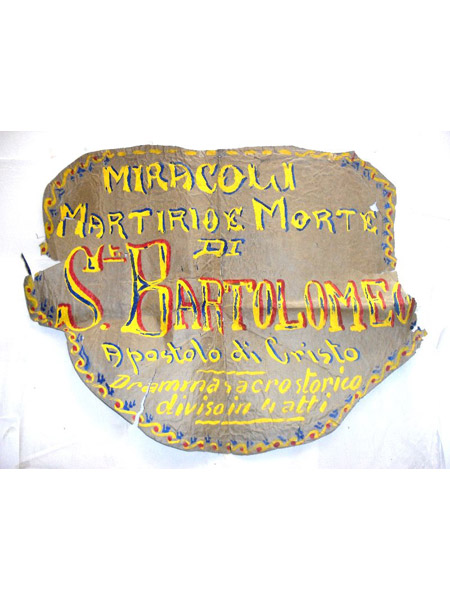 MIRACOLI
MARTIRIO E MORTE
DI
S. BARTOLOMEO
Apostolo di Cristo
Dramma sacro storico
diviso in 4 atti